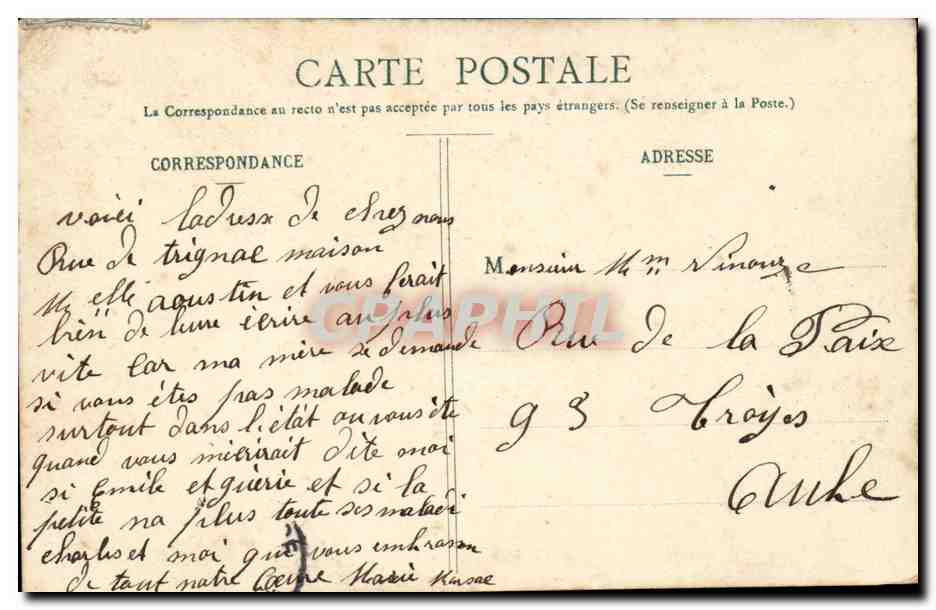 CARTE POSTALE
La Correspondance au recto n'est pas acceptée par tous les pays étrangers. (Se renseigner à la Poste.)
CORRESPONDANCE
voiei ladresse de chez nous
Rue de trignac maison
M elle agustin et vous ferait
bien de leure écrire au plus
vite car ma mère se demande
si vous étes pas malade
surtout dans l'état ou vous éte
quand vous miérirait dite moi
si Emile et guérie et si la
petite na plus toute ses maladi
charles et moi qui vous embrasson
de tout notre Coeure Marie
ADRESSE
Monsieur M m
Rue de la Paix
93 Troÿes
Aube
CPAPHIL